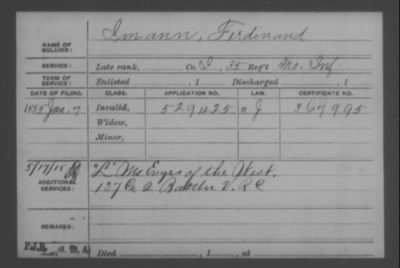 NAME OF SOLDIER: Imann, Ferdinand
SERVICE: Late rank, Co. I, 35 Reg't Mo. Inf.
TERM OF SERVICE: Enlisted , 1 Discharged , 1
DATE OF FILING. CLASS. APPLICATION NO. LAW. CERTIFICATE NO.
1885 Jan. 7 Invalid, 529425 J 367995
Widow,
Minor,
5/17/15 "L" Mo Engrs of the West,
ADDITIONAL SERVICES: 127 Co 2 Battn V.R.C
REMARKS:
Died , 1 , at